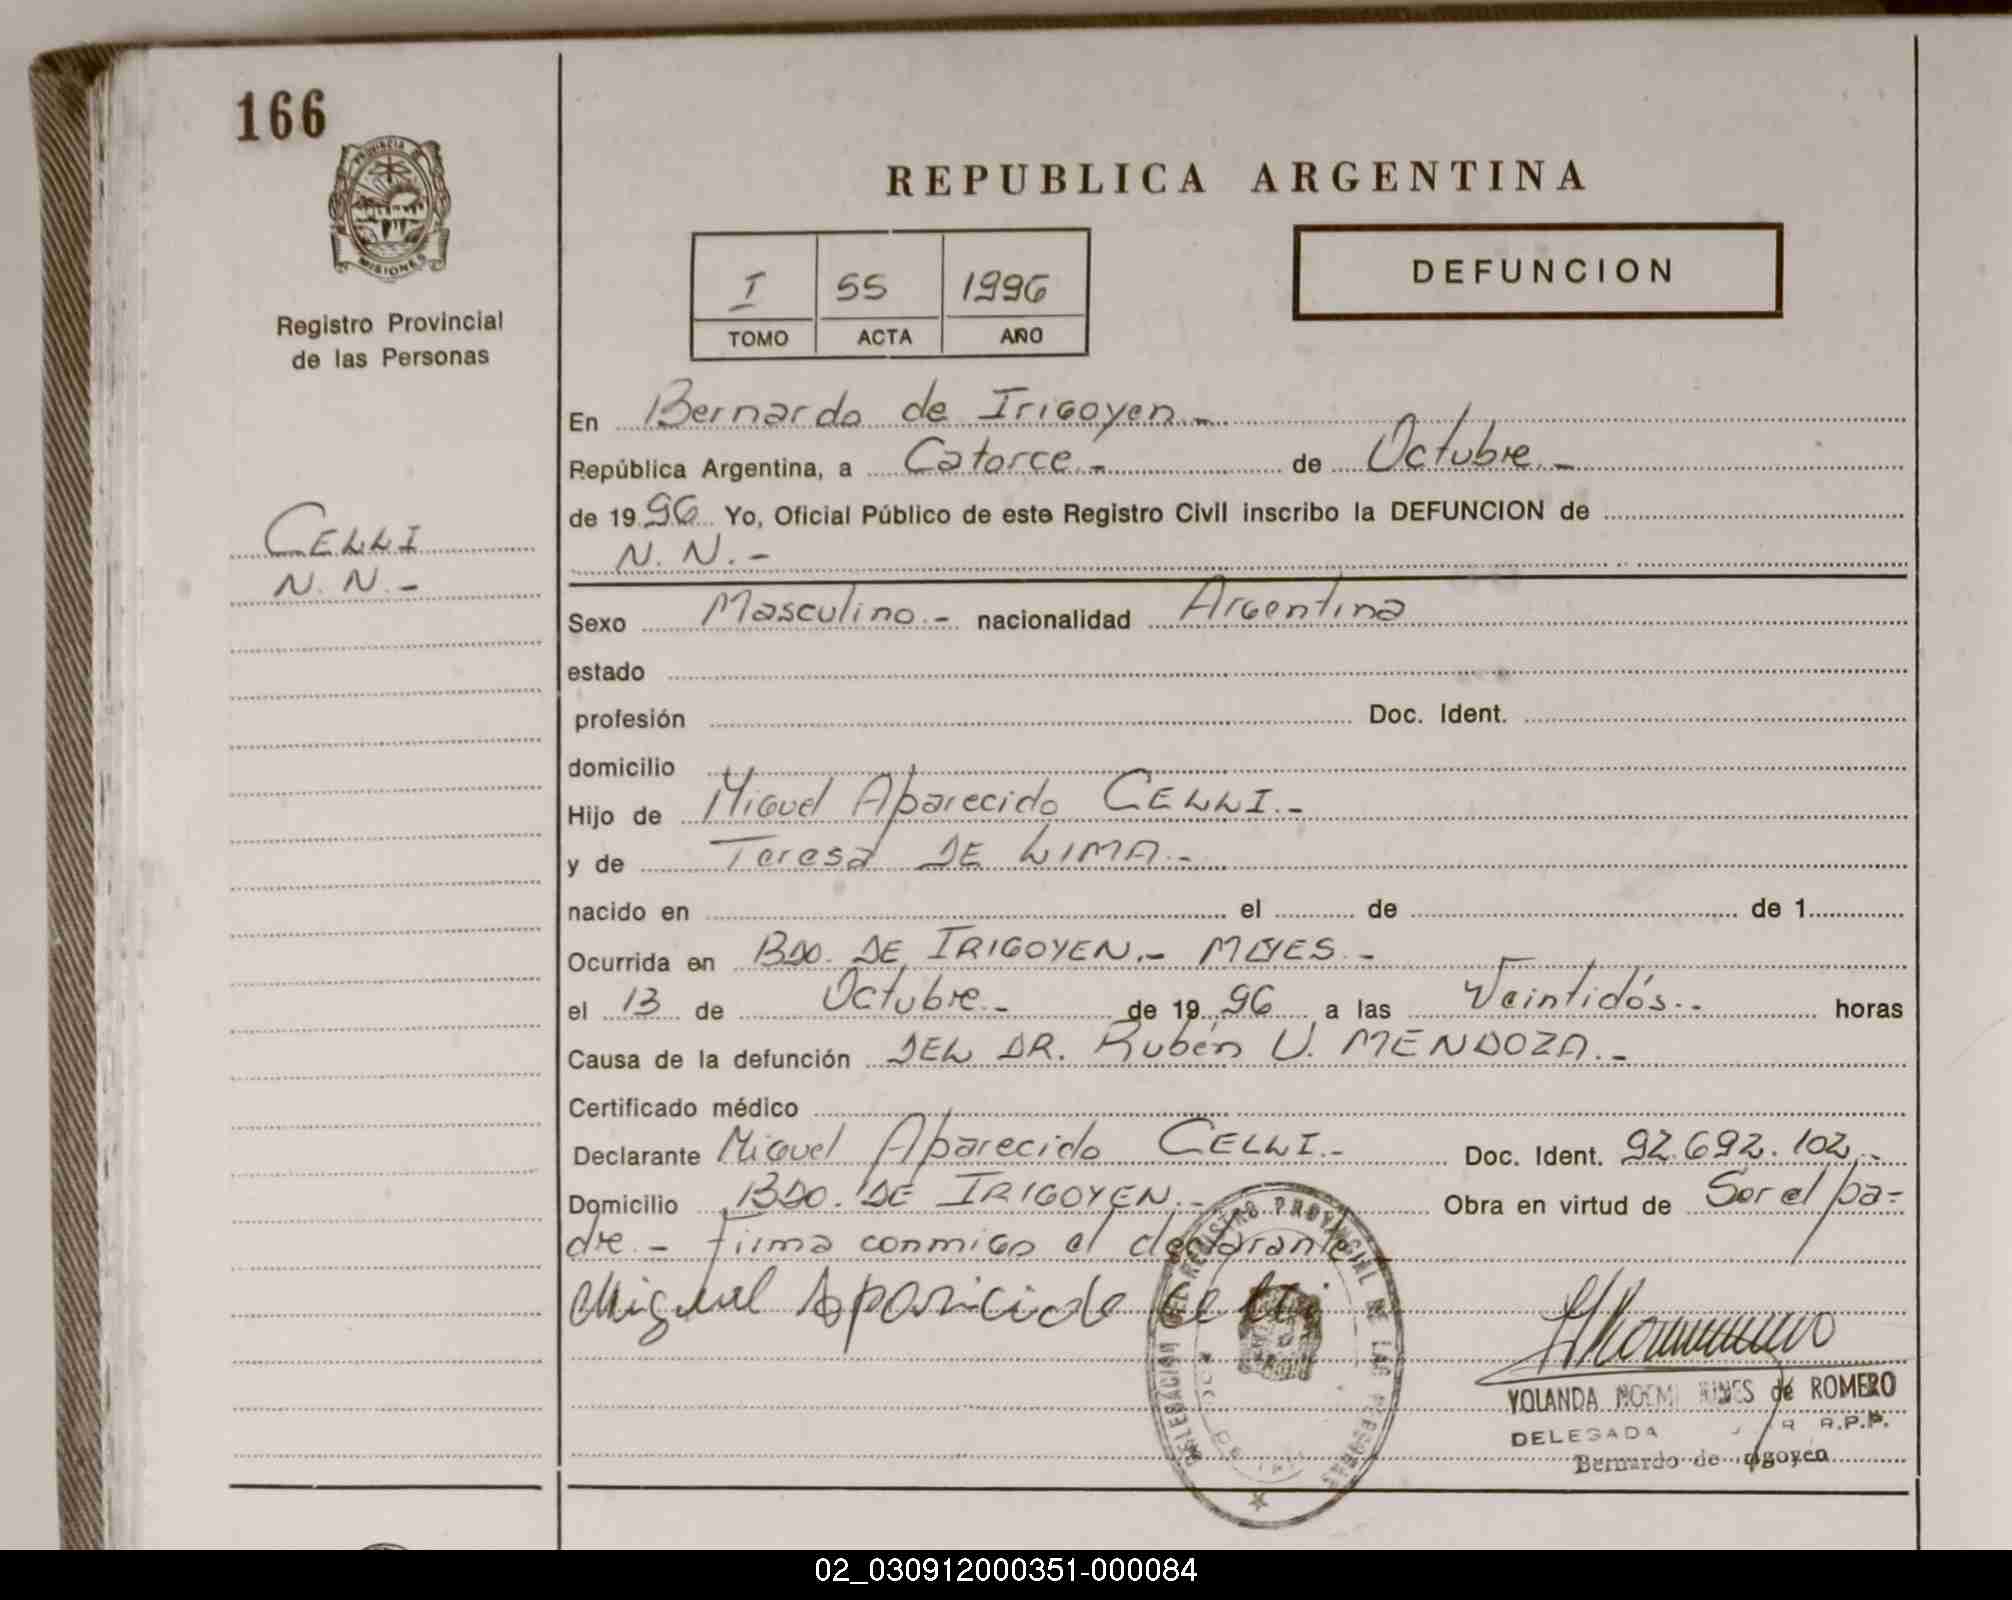 166
PROVINCIA DE
MISIONES
Registro Provincial
de las Personas
REPUBLICA ARGENTINA
I 55 1996
TOMO ACTA AÑO
DEFUNCION
CELLI
N. N. -
En Bernardo de Irigoyen.-
República Argentina, a Catorce.- de Octubre.-
de 1996 Yo, Oficial Público de este Registro Civil inscribo la DEFUNCION de
N. N. -
Sexo Masculino.- nacionalidad Argentina
estado
profesión Doc. Ident.
domicilio
Hijo de Miguel Aparecido CELLI.-
y de Teresa DE LIMA.-
nacido en el de de 1
Ocurrida en BDO. DE IRIGOYEN.-
el 13 de Octubre.- de 1996 a las Veintidós.- horas
Causa de la defunción DEL DR. Rubén U. MENDOZA.-
Certificado médico
Declarante Miguel Aparecido CELLI.- Doc. Ident. 92.692.102.-
Domicilio BDO. DE IRIGOYEN.- Obra en virtud de Ser el pa=
dre.- Firma conmigo el declarante
Miguel Aparicido Celli
DELEGACION DEL REGISTRO PROVINCIAL DE LAS PERSONAS
YOLANDA NOEMI de ROMERO
DELEGADA R.P.P.
Bernardo de Irigoyen
02_030912000351-000084